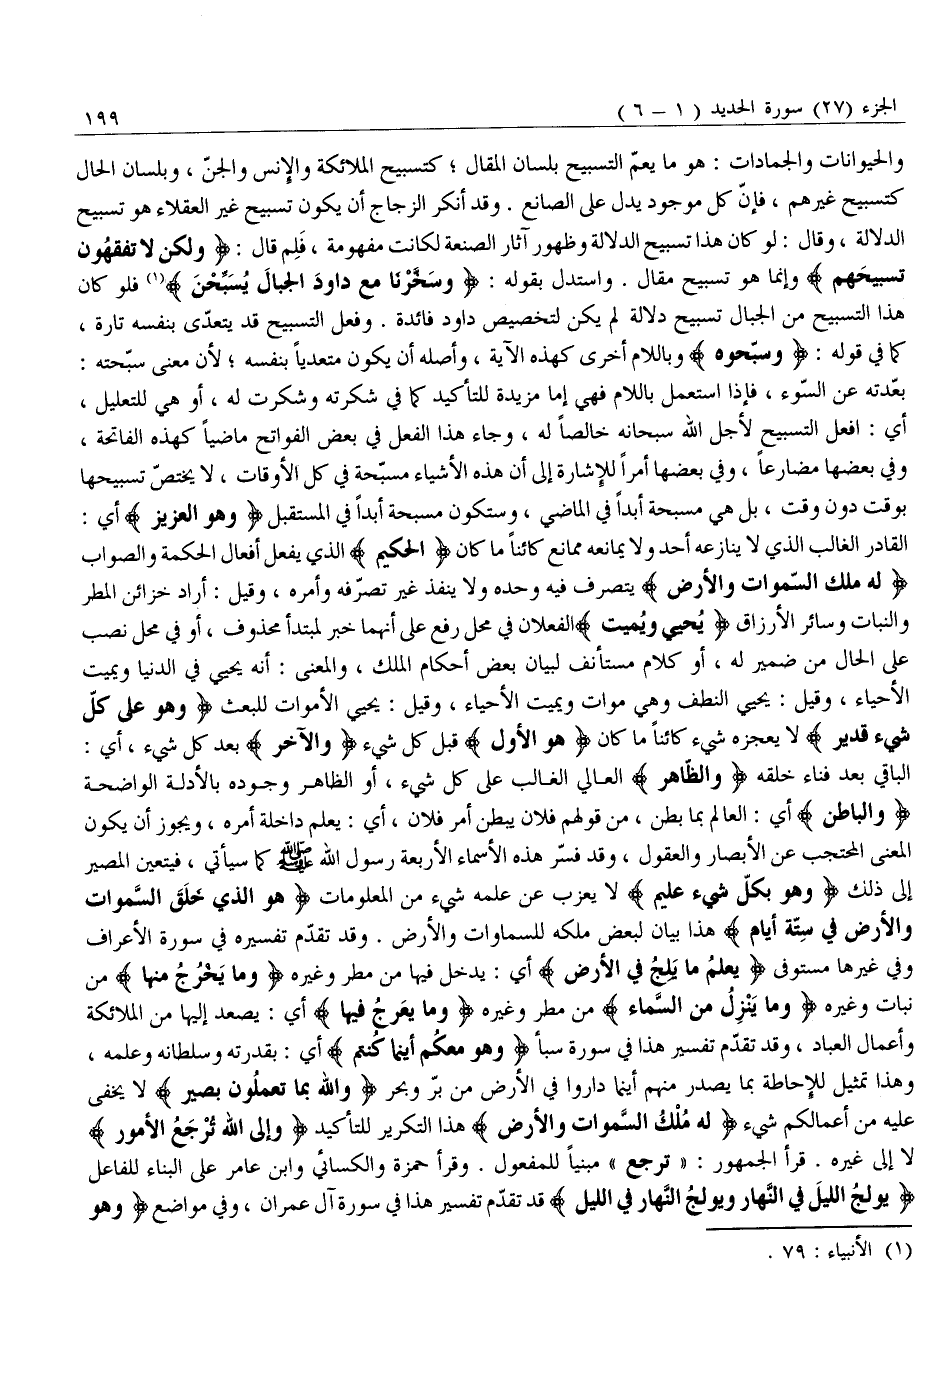 الجزء (٢٧) سورة الحديد ( ١ – ٦ )
١٩٩
والحيوانات والجمادات : هو ما يعمّ التسبيح بلسان المقال ؛ كتسبيح الملائكة والإنس والجنّ ، وبلسان الحال
كتسبيح غيرهم ، فإنّ كل موجود يدل على الصانع . وقد أنكر الزجاج أن يكون تسبيح غير العقلاء هو تسبيح
الدلالة ، وقال : لو كان هذا تسبيح الدلالة وظهور آثار الصنعة لكانت مفهومة ، فَلِم قال : ﴿ ولكن لا تفقهُون
تسبيحَهم ﴾ وإنما هو تسبيح مقال . واستدل بقوله : ﴿ وسَخَّرْنَا مع داودَ الجبالَ يُسَبِّحْنَ ﴾(١) فلو كان
هذا التسبيح من الجبال تسبيح دلالة لم يكن لتخصيص داود فائدة . وفعل التسبيح قد يتعدّى بنفسه تارة ،
كما في قوله : ﴿ وسبّحوه ﴾ وباللام أخرى كهذه الآية ، وأصله أن يكون متعدياً بنفسه ؛ لأن معنى سبّحته :
بعّدته عن السّوء ، فإذا استعمل باللام فهي إما مزيدة للتأكيد كما في شكرته وشكرت له ، أو هي للتعليل ،
أي : افعل التسبيح لأجل الله سبحانه خالصاً له ، وجاء هذا الفعل في بعض الفواتح ماضياً كهذه الفاتحة ،
وفي بعضها مضارعاً ، وفي بعضها أمراً للإشارة إلى أن هذه الأشياء مسبّحة في كل الأوقات ، لا يختصّ تسبيحها
بوقت دون وقت ، بل هي مسبحة أبداً في الماضي ، وستكون مسبحة أبداً في المستقبل ﴿ وهو العزيز ﴾ أي :
القادر الغالب الذي لا ينازعه أحد ولا يمانعه ممانع كائناً ما كان ﴿ الحكيم ﴾ الذي يفعل أفعال الحكمة والصواب
﴿ له ملك السّموات والأرض ﴾ يتصرف فيه وحده ولا ينفذ غير تصرّفه وأمره ، وقيل : أراد خزائن المطر
والنبات وسائر الأرزاق ﴿ يُحيي ويُميت ﴾ الفعلان في محل رفع على أنهما خبر لمبتدأ محذوف ، أو في محل نصب
على الحال من ضمير له ، أو كلام مستأنف لبيان بعض أحكام الملك ، والمعنى : أنه يحيي في الدنيا ويميت
الأحياء ، وقيل : يحيي النطف وهي موات ويميت الأحياء ، وقيل : يحيي الأموات للبعث ﴿ وهو على كلّ
شيء قدير ﴾ لا يعجزه شيء كائناً ما كان ﴿ هو الأول ﴾ قبل كل شيء ﴿ والآخر ﴾ بعد كل شيء ، أي :
الباقي بعد فناء خلقه ﴿ والظّاهر ﴾ العالي الغالب على كل شيء ، أو الظاهر وجوده بالأدلة الواضحة
﴿ والباطن ﴾ أي : العالم بما بطن ، من قولهم فلان يبطن أمر فلان ، أي : يعلم داخلة أمره ، ويجوز أن يكون
المعنى المحتجب عن الأبصار والعقول ، وقد فسّر هذه الأسماء الأربعة رسول الله ﷺ كما سيأتي ، فيتعين المصير
إلى ذلك ﴿ وهو بكلّ شيء عليم ﴾ لا يعزب عن علمه شيء من المعلومات ﴿ هو الذي خَلَقَ السَّموات
والأرض في سِتّة أيام ﴾ هذا بيان لبعض ملكه للسماوات والأرض . وقد تقدّم تفسيره في سورة الأعراف
وفي غيرها مستوفى ﴿ يعلمُ ما يَلِجُ في الأرض ﴾ أي : يدخل فيها من مطر وغيره ﴿ وما يَخْرُجُ منها ﴾ من
نبات وغيره ﴿ وما يَنْزِلُ من السَّماء ﴾ من مطر وغيره ﴿ وما يعَرجُ فيها ﴾ أي : يصعد إليها من الملائكة
وأعمال العباد ، وقد تقدّم تفسير هذا في سورة سبأ ﴿ وهو معكُم أينما كُنتم ﴾ أي : بقدرته وسلطانه وعلمه ،
وهذا تمثيل للإحاطة بما يصدر منهم أينما داروا في الأرض من برّ وبحر ﴿ والله بما تعملُون بصير ﴾ لا يخفى
عليه من أعمالكم شيء ﴿ له مُلْكُ السَّموات والأرض ﴾ هذا التكرير للتأكيد ﴿ وإلى الله تُرْجَعُ الأمور ﴾
لا إلى غيره . قرأ الجمهور : « ترجع » مبنياً للمفعول . وقرأ حمزة والكسائي وابن عامر على البناء للفاعل
﴿ يولجُ الليلَ في النَّهار ويولجُ النَّهار في الليل ﴾ قد تقدّم تفسير هذا في سورة آل عمران ، وفي مواضع ﴿ وهو
(١) الأنبياء : ٧٩ .